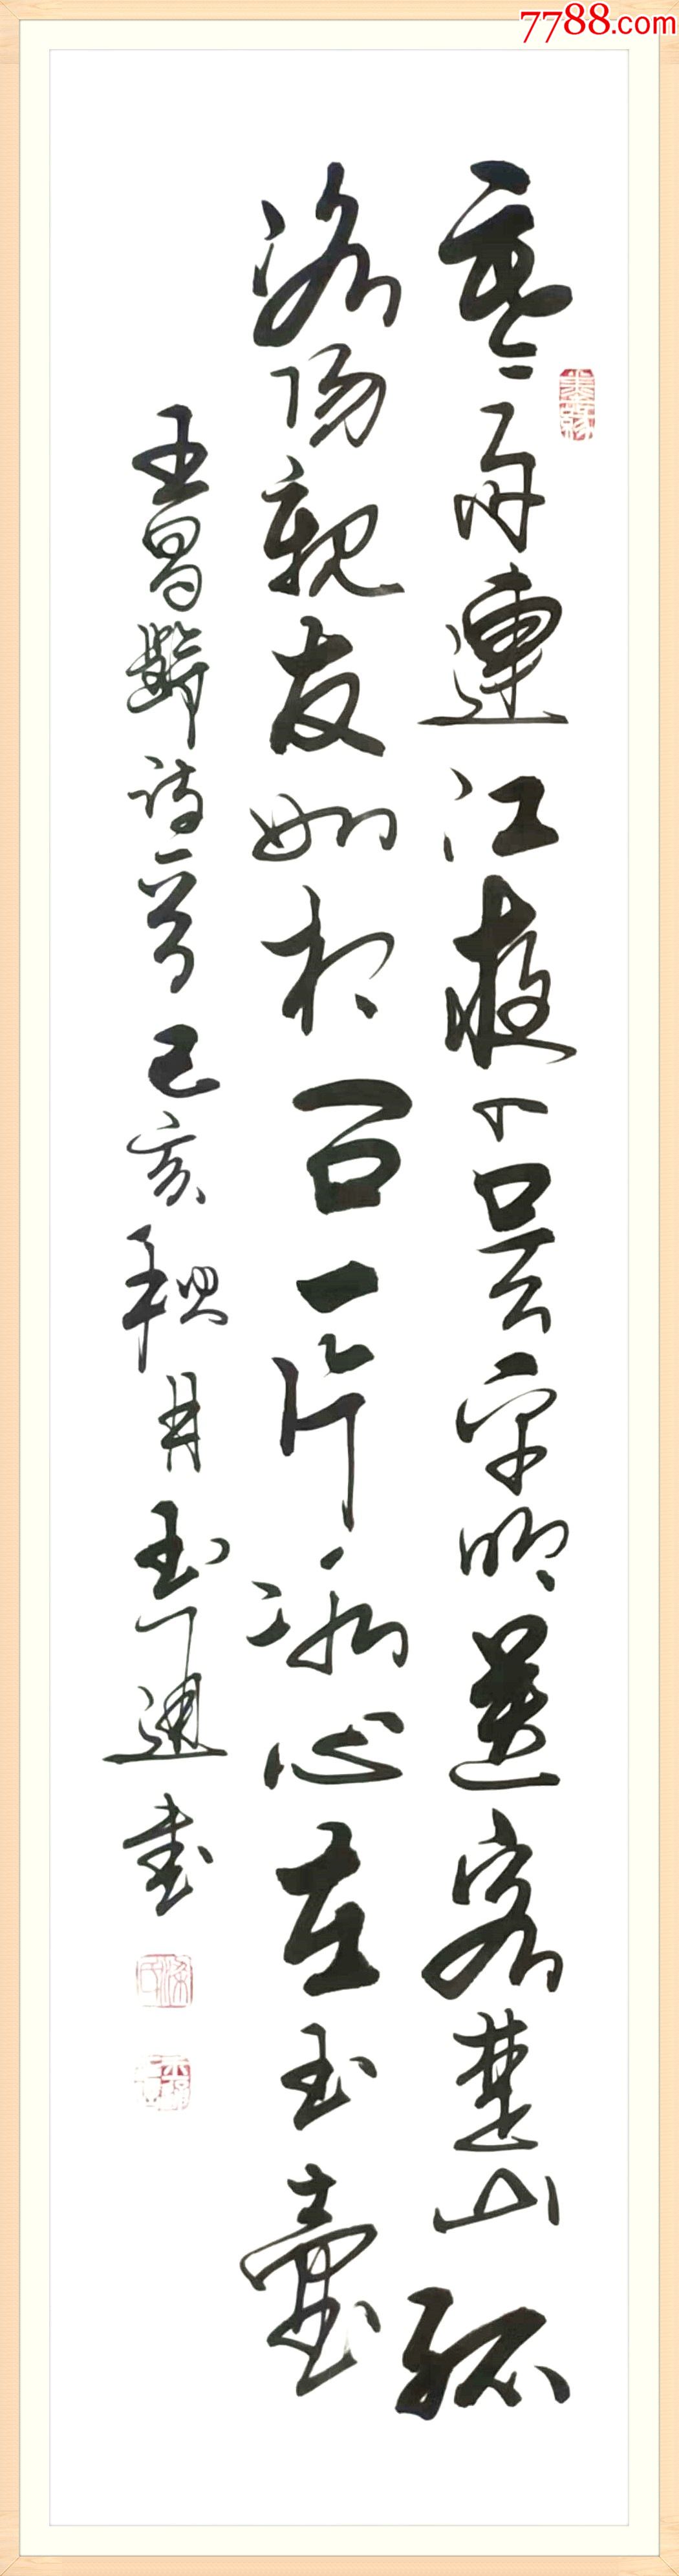 7788.com
寒雨連江夜入吴平明送客楚山孤
洛陽親友如相问一片冰心在玉壺
王昌齡詩一首己亥穐月玉通书